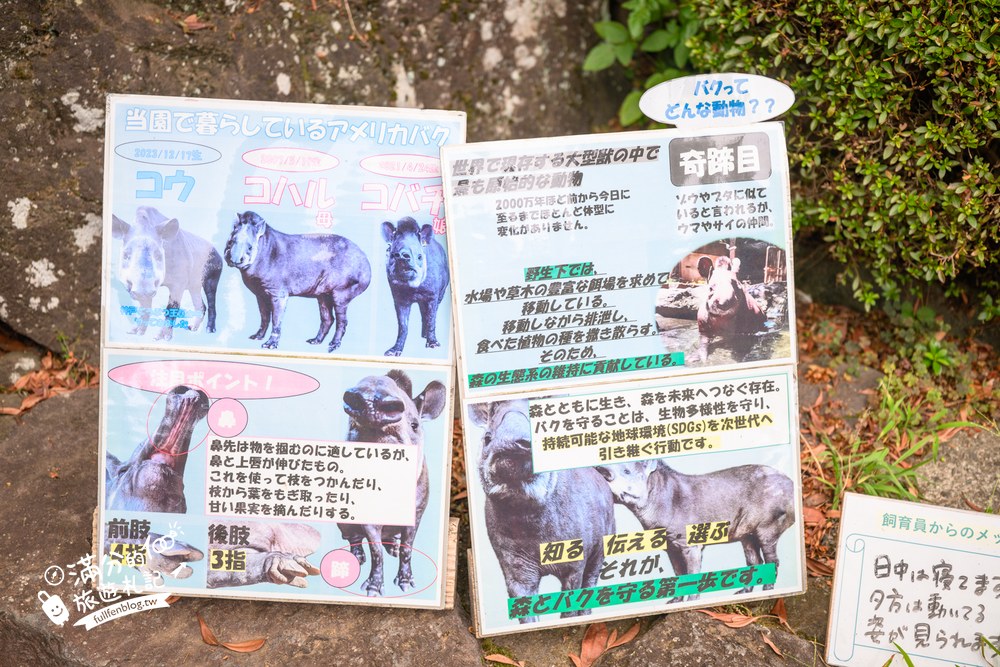 当園で暮らしているアメリカバク
2023/12/17生
コウ
コハル
母
コバチ
娘
注目ポイント!
鼻
鼻先は物を掴むのに適しているが、
鼻と上唇が伸びたもの。
これを使って枝をつかんだり、
枝から葉をもぎ取ったり、
甘い果実を摘んだりする。
前肢
4指
後肢
3指
蹄
バクって
どんな動物??
世界で現存する大型獣の中で
最も原始的な動物
2000万年ほど前から今日に
至るまでほとんど体型に
変化がありません。
奇蹄目
ゾウやブタに似て
いると言われるが、
ウマやサイの仲間。
野生下では、
水場や草木の豊富な餌場を求めて
移動している。
移動しながら排泄し、
食べた植物の種を撒き散らす。
そのため、
森の生態系の維持に貢献している。
森とともに生き、森を未来へつなぐ存在。
バクを守ることは、生物多様性を守り、
持続可能な地球環境(SDGs)を次世代へ
引き継ぐ行動です。
知る 伝える 選ぶ
それが、
森とバクを守る第一歩です。
飼育員からのメッ
日中は寝てます
夕方は動いてる
姿が見られます
滿分的
旅遊札記
fullfenblog.tw